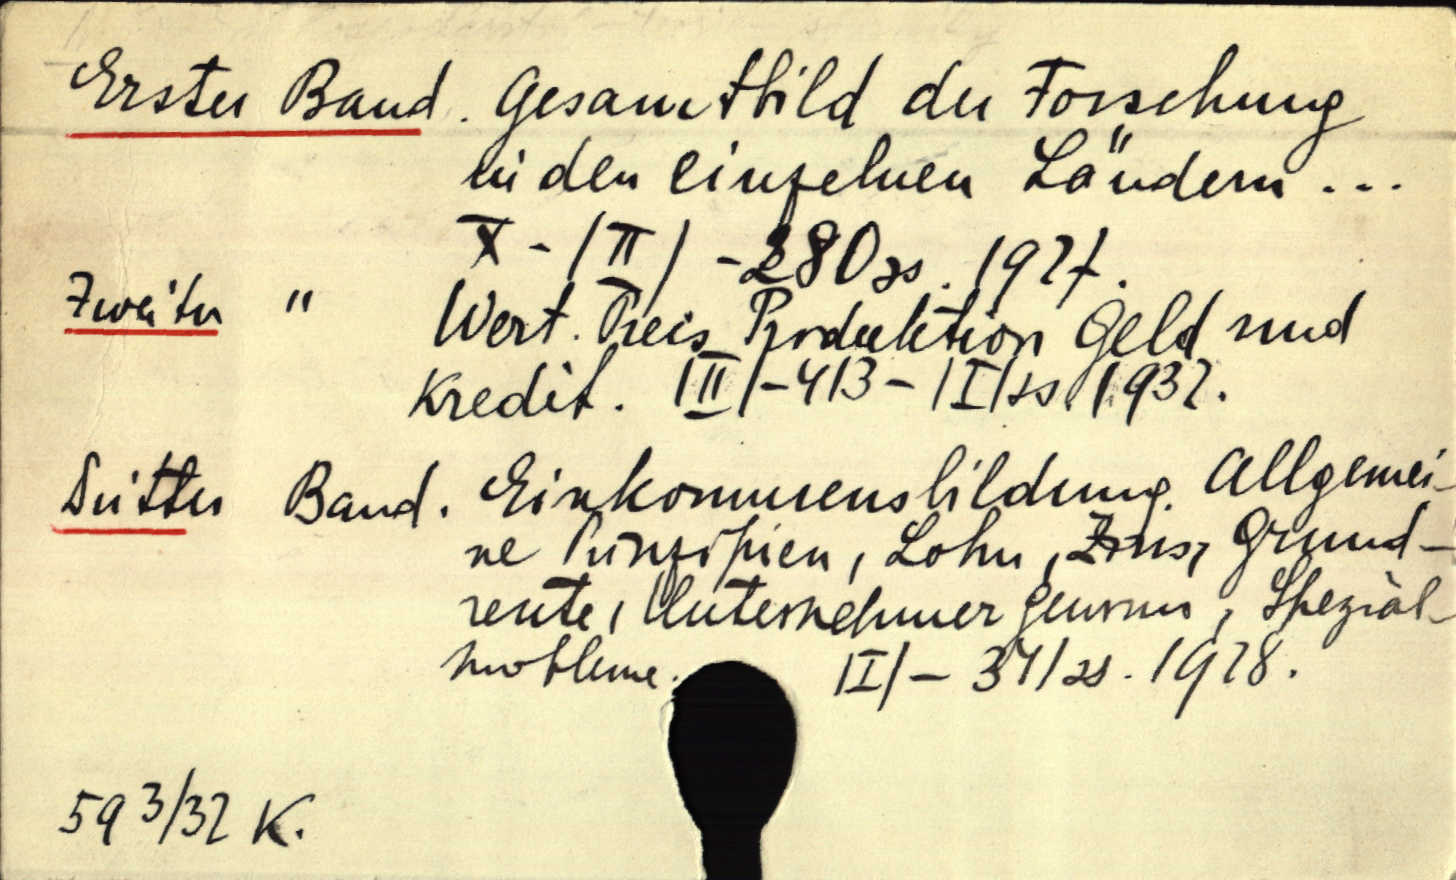 Erster Band. Gesamtbild der Forschung
in den einzelnen Ländern ...
X - /II/ - 280 ss. 1927.
Zweiter " Wert. Preis Produktion Geld und
Kredit. /II/ - 413 - /I/ ss. 1932.
Dritter Band. Einkommensbildung. Allgemei-
ne Prinzipien, Lohn, Zins, Grund-
rente, Unternehmergewinn, Spezial-
probleme. /I/ - 341 ss. 1928.
593/32 K.